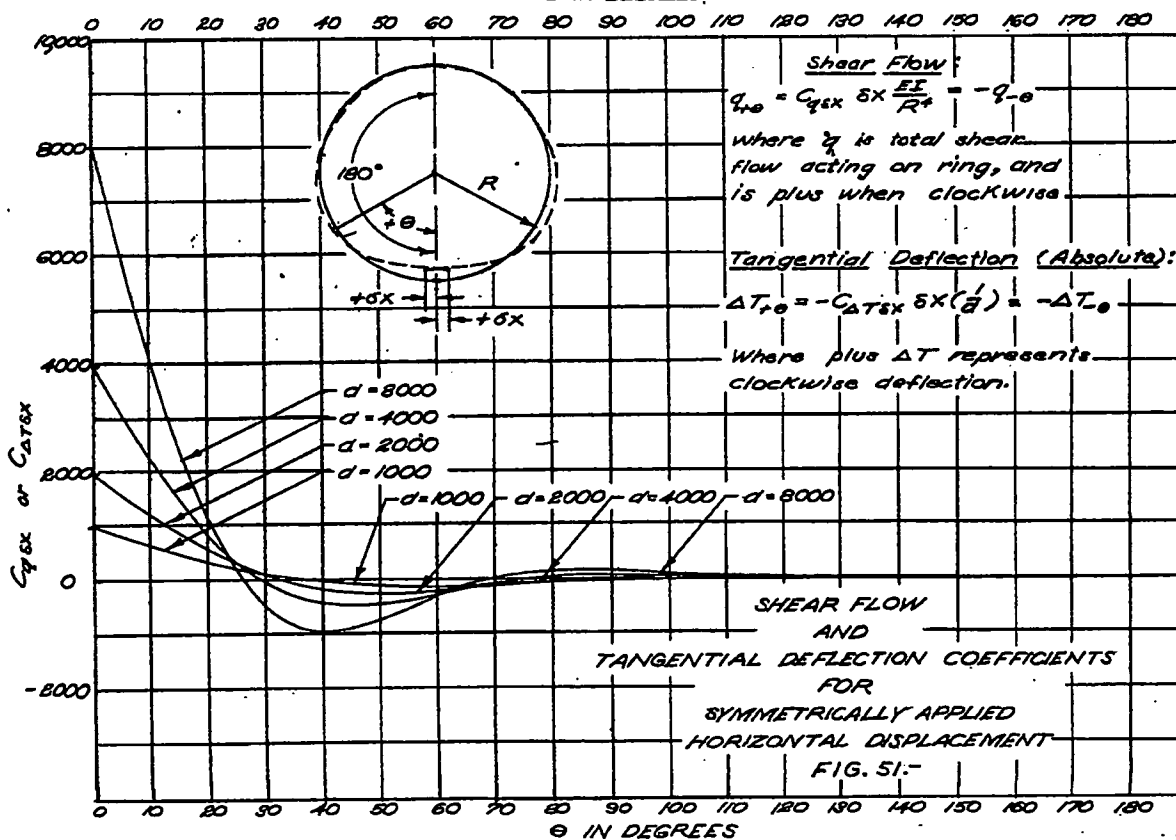 0 10 20 30 40 50 60 70 80 90 100 110 120 130 140 150 160 170 180
10000
8000
6000
4000
2000
0
-2000
C_qδx or C_ΔTδx
180°
R
+θ
+δx
+δx
Shear Flow:
q_+θ = C_qδx δx EI/R⁴ = -q_-θ
where q is total shear
flow acting on ring, and
is plus when clockwise
Tangential Deflection (Absolute):
ΔT_+θ = -C_ΔTδx δx(1/d) = -ΔT_-θ
Where plus ΔT represents
clockwise deflection.
d=8000
d=4000
d=2000
d=1000
d=1000 d=2000 d=4000 d=8000
SHEAR FLOW
AND
TANGENTIAL DEFLECTION COEFFICIENTS
FOR
SYMMETRICALLY APPLIED
HORIZONTAL DISPLACEMENT
FIG. 51.-
0 10 20 30 40 50 60 70 80 90 100 110 120 130 140 150 160 170 180
θ IN DEGREES